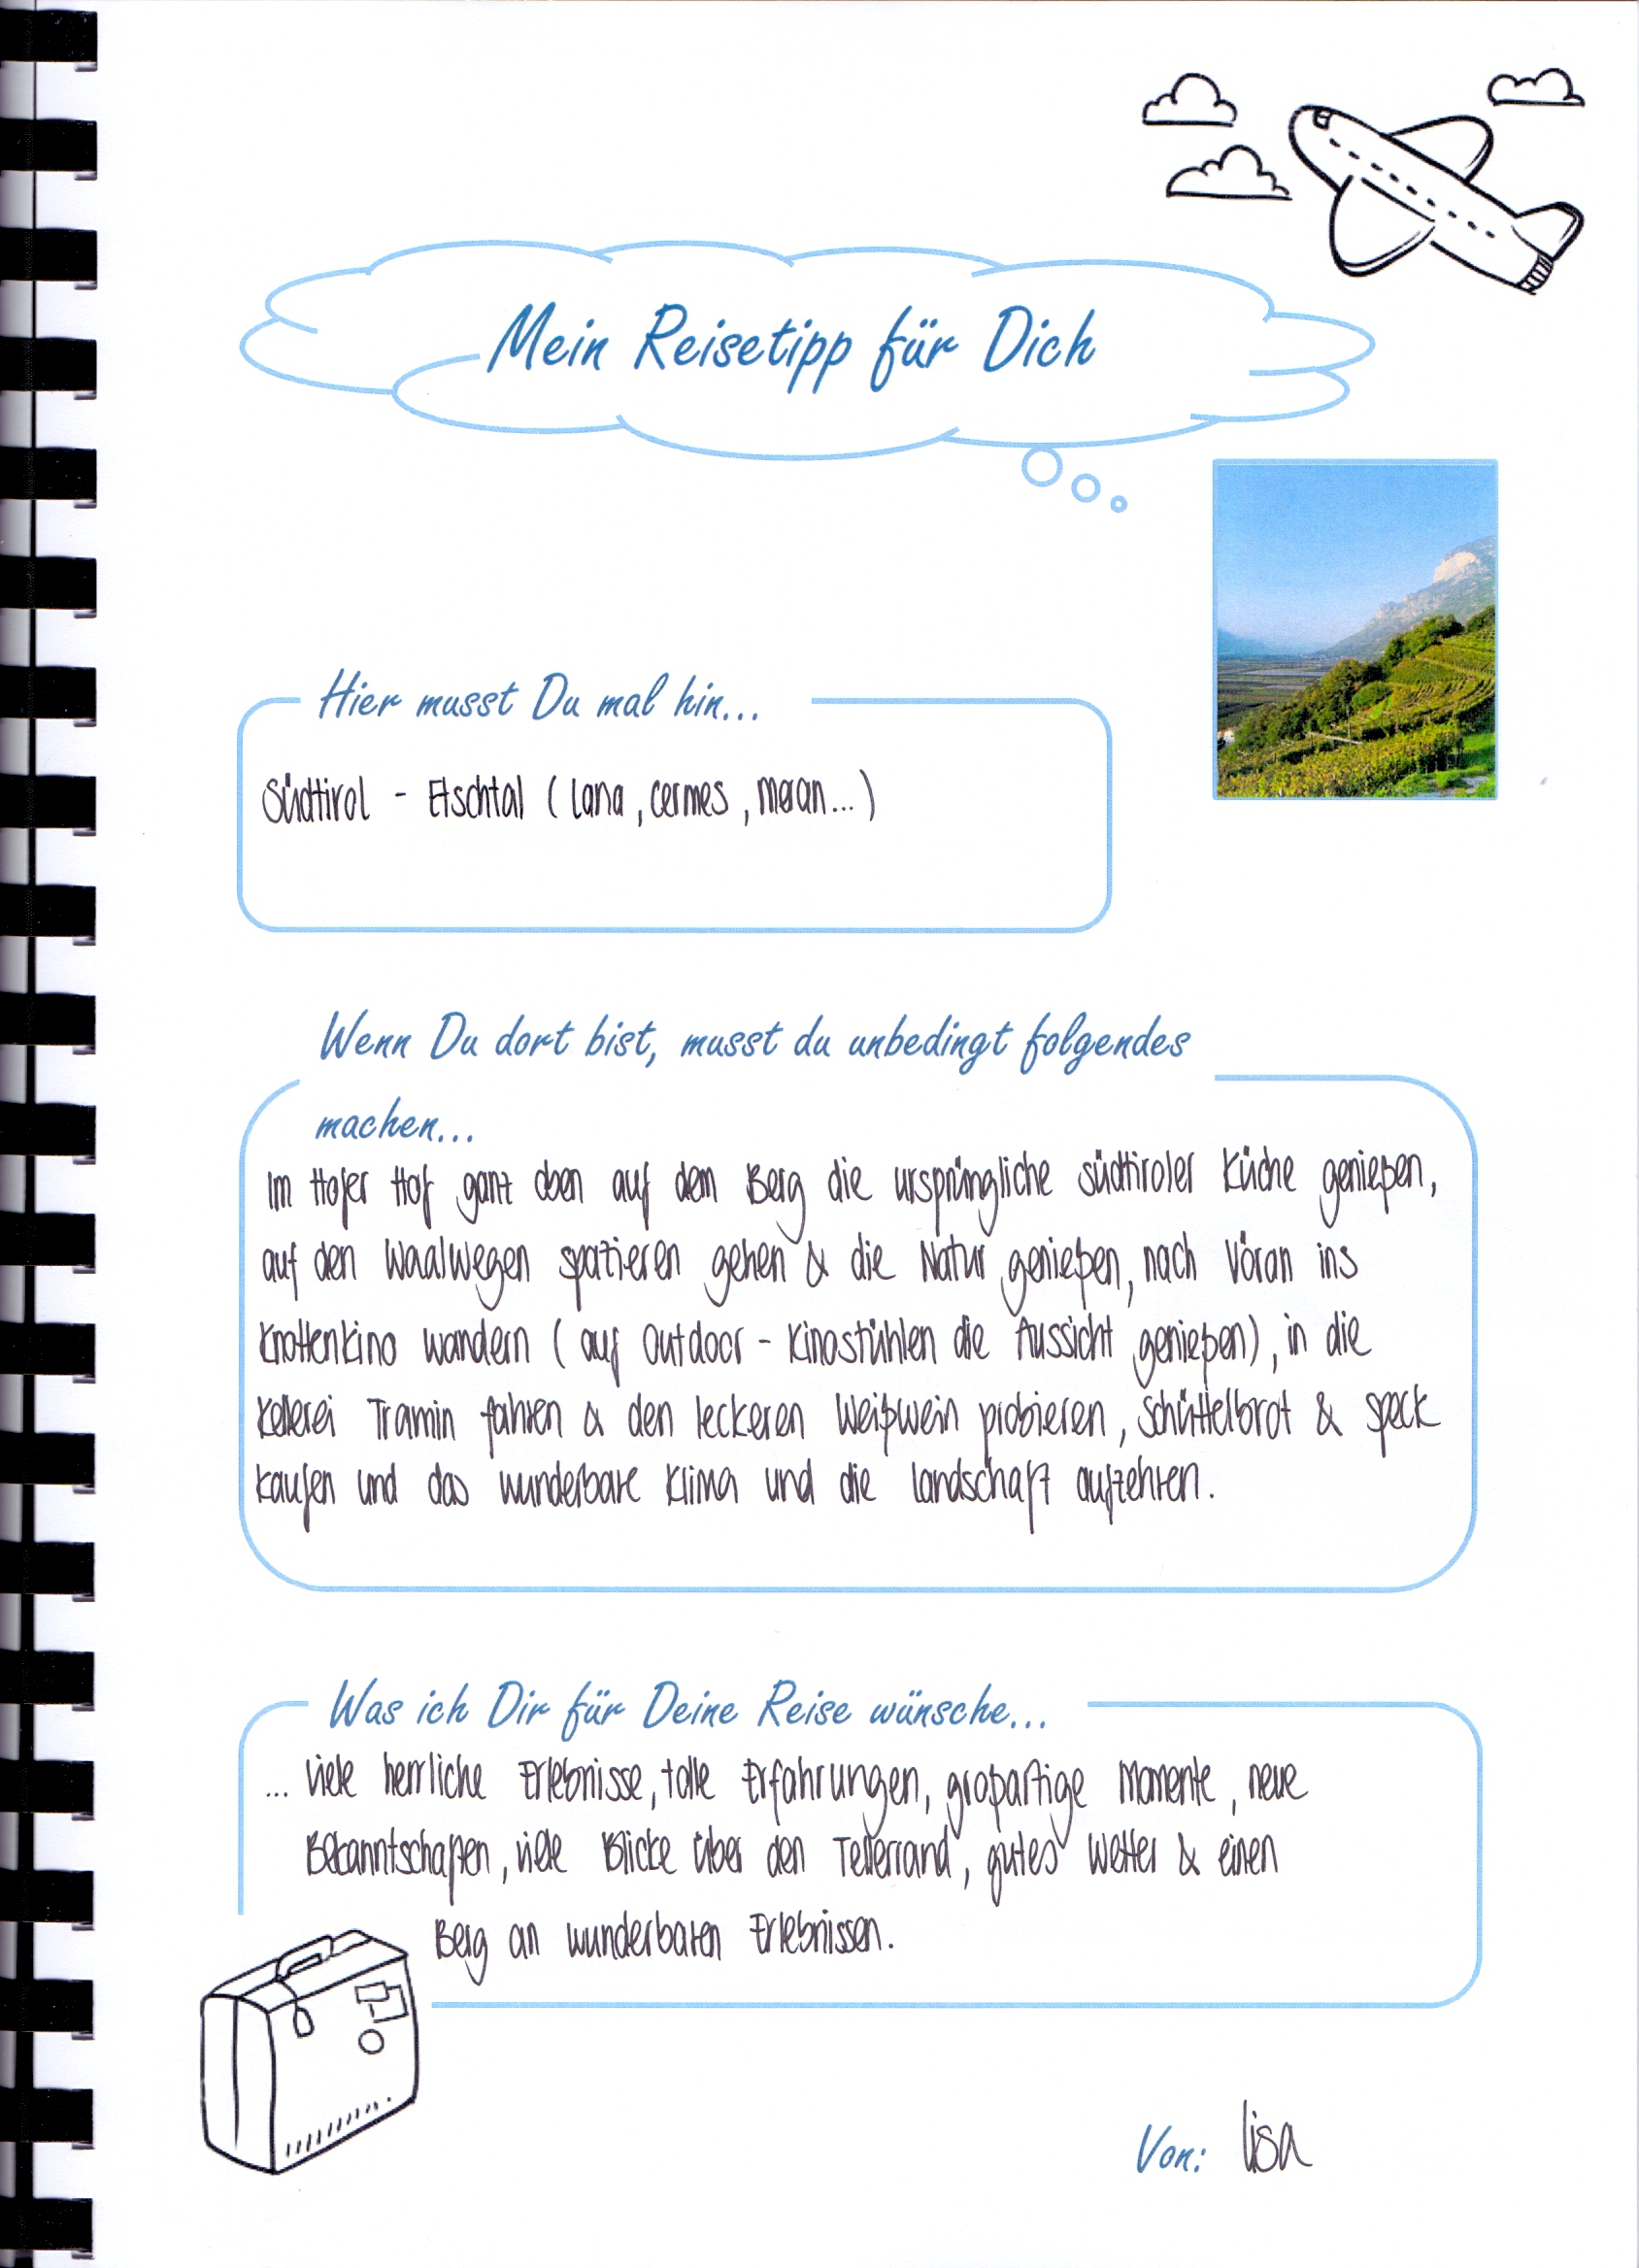 Mein Reisetipp für Dich
Hier musst Du mal hin...
Südtirol - Etschtal (Lana, Cermes, Meran...)
Wenn Du dort bist, musst du unbedingt folgendes
machen...
Im Hofer Hof ganz oben auf dem Berg die ursprüngliche südtiroler Küche genießen,
auf den Waalwegen spazieren gehen & die Natur genießen, nach Vöran ins
Knottenkino wandern (auf Outdoor-Kinostühlen die Aussicht genießen), in die
Kellerei Tramin fahren & den leckeren Weißwein probieren, Schüttelbrot & Speck
kaufen und das wunderbare Klima und die Landschaft aufzehren.
Was ich Dir für Deine Reise wünsche...
... viele herrliche Erlebnisse, tolle Erfahrungen, großartige Momente, neue
Bekanntschaften, viele Blicke über den Tellerrand, gutes Wetter & einen
Berg an wunderbaren Erlebnissen.
Von: Lisa